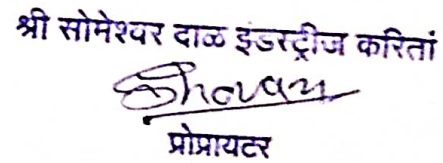 श्री सोमेश्वर दाळ इंडस्ट्रीज करितां
प्रोप्रायटर